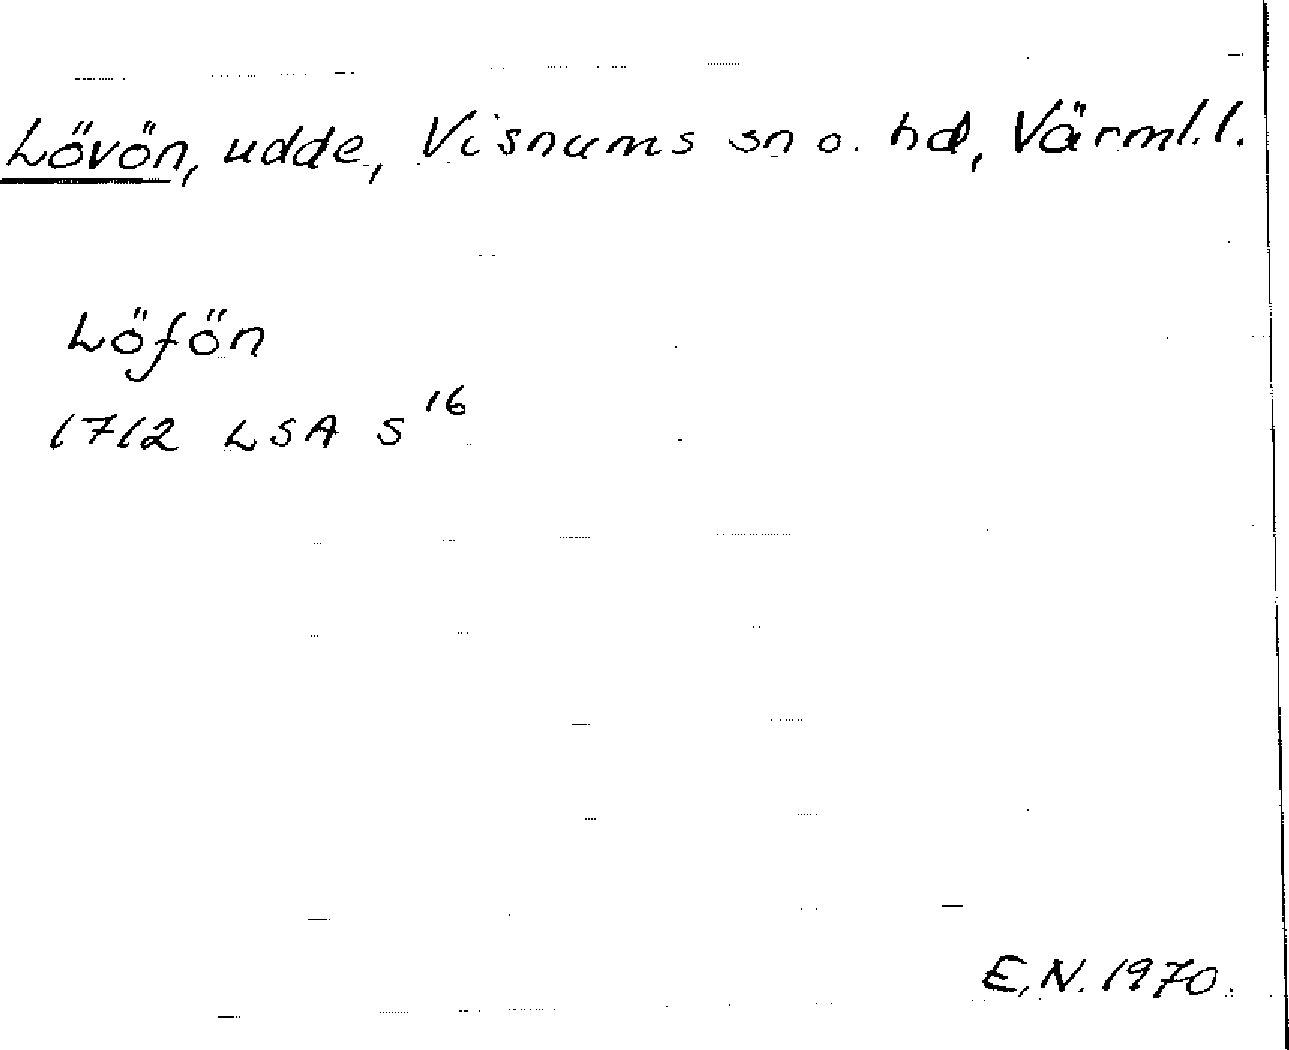 Lövön, udde, Visnums sn o. hd, Värml.l.
Löfön
1712 LSA S 16
E.N. 1970.